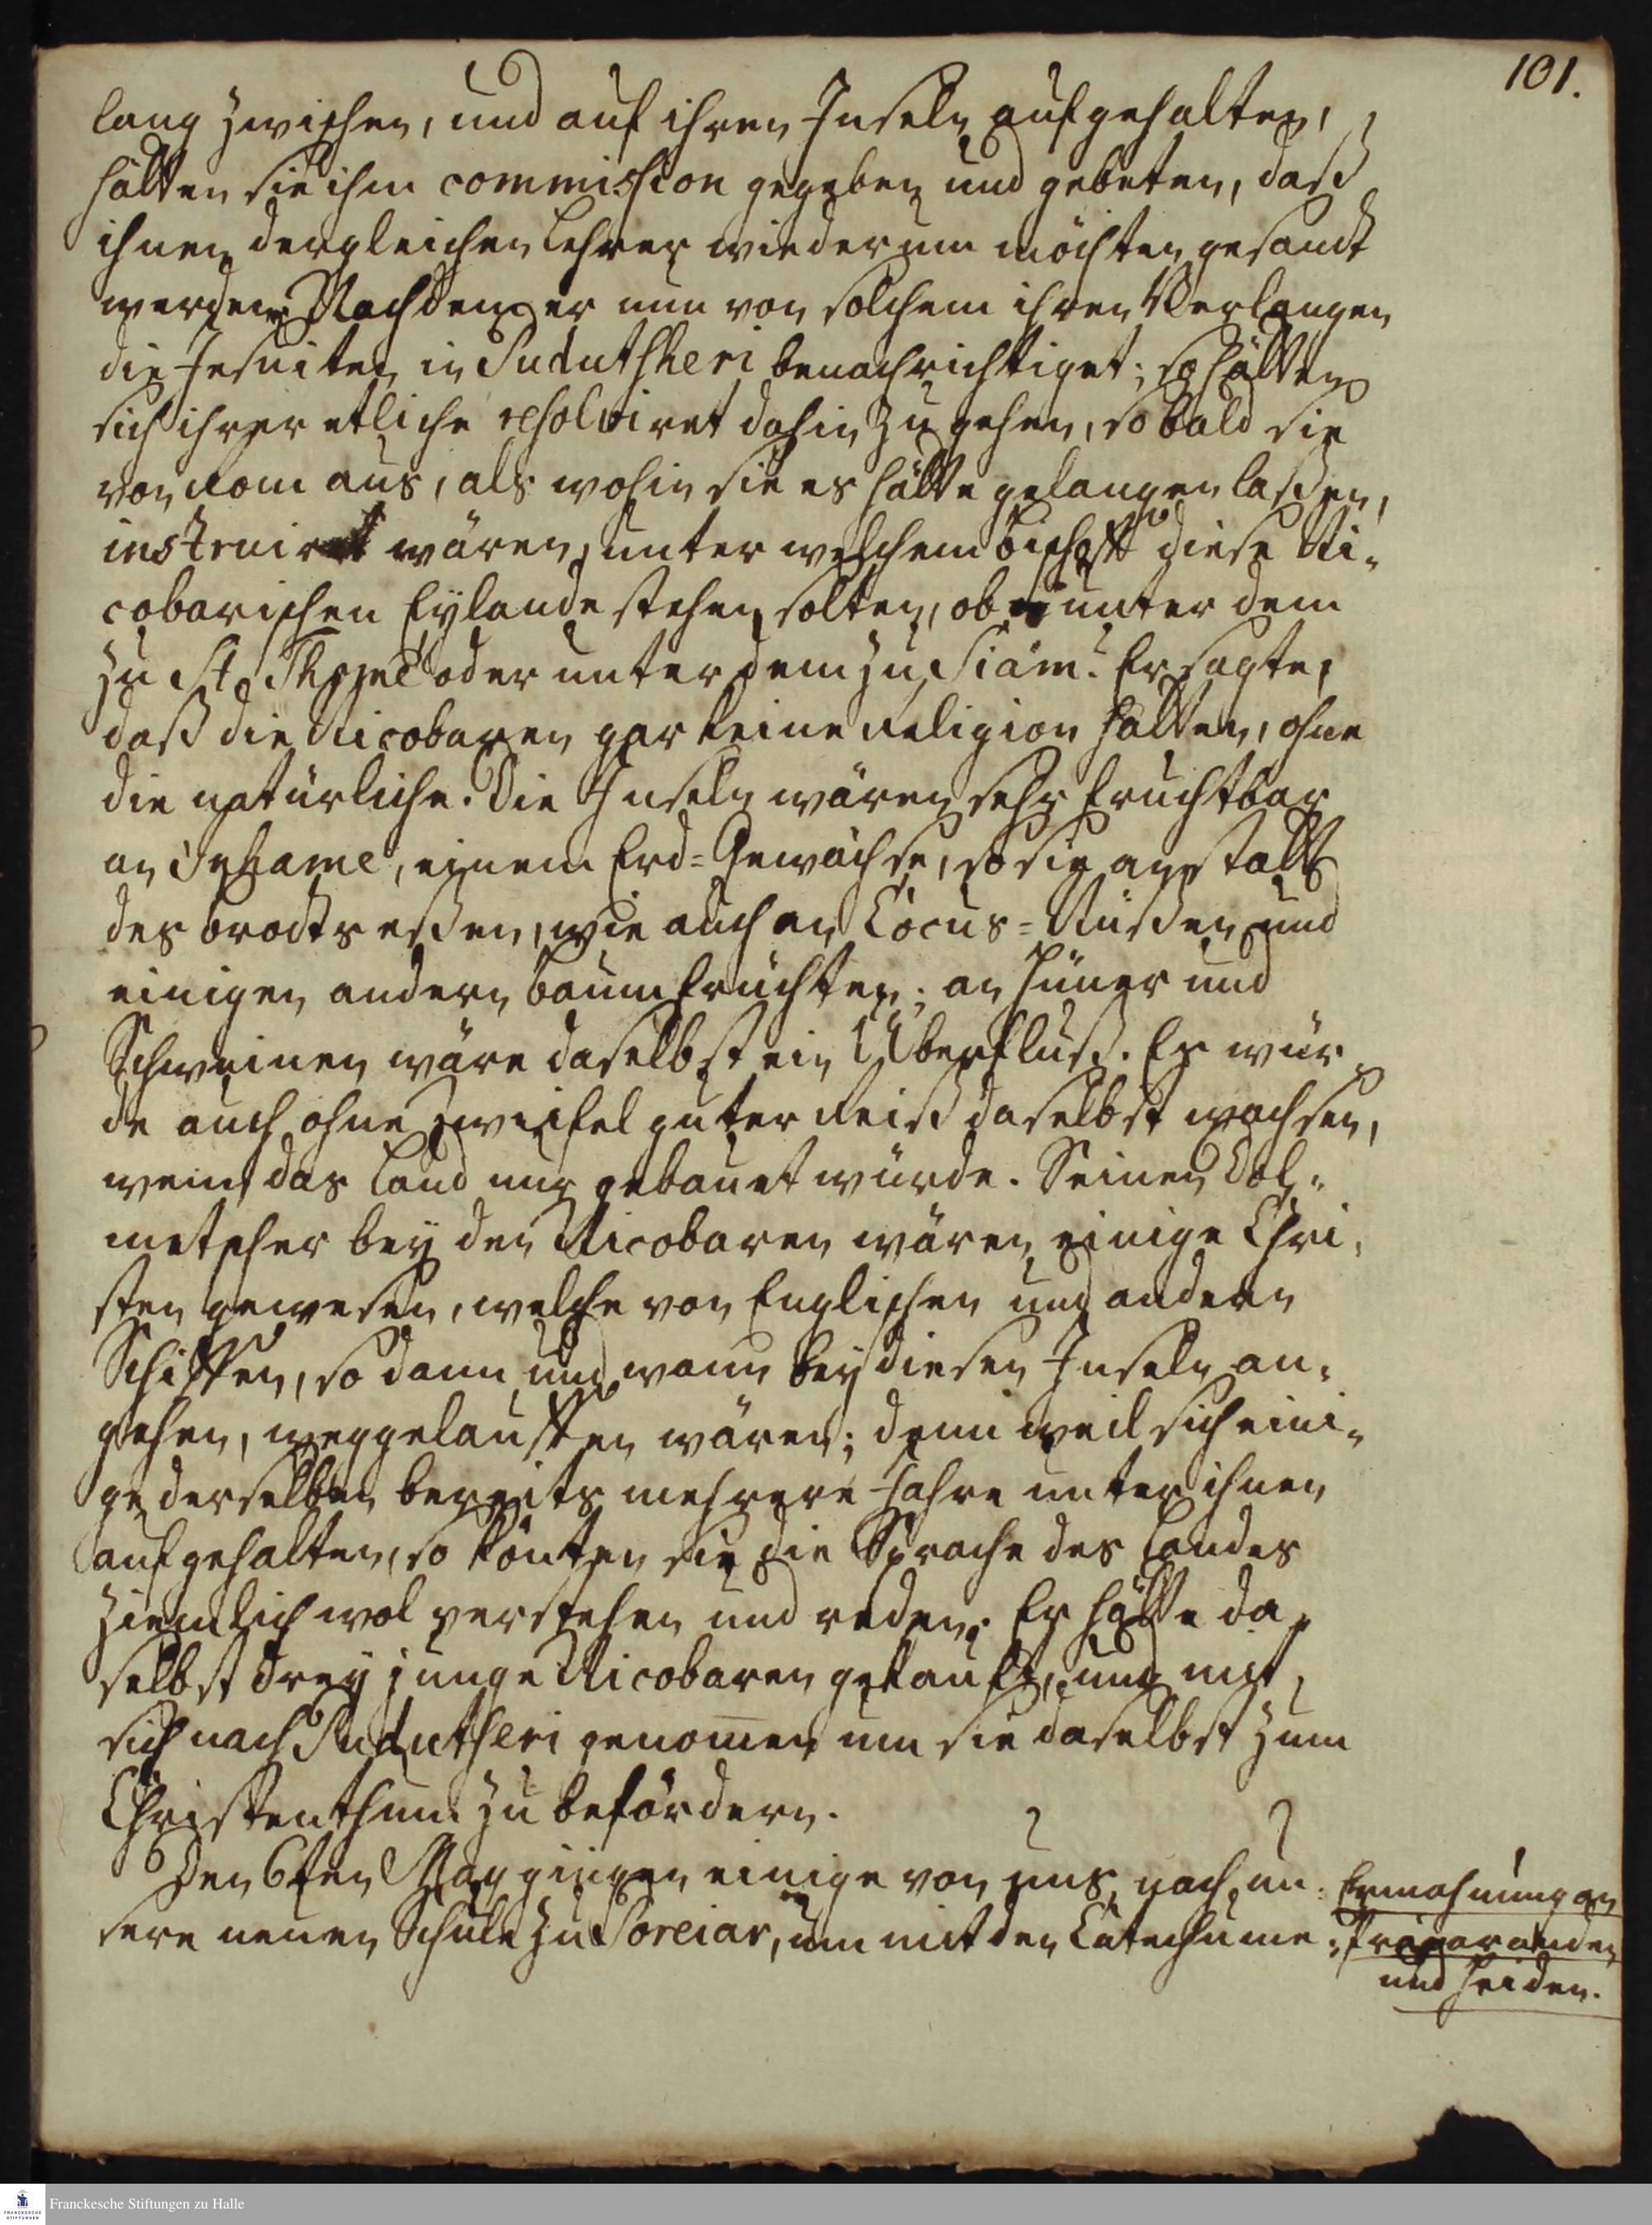 101.
lang zwischen, und auf ihren Inseln aufgehalten,
hätten sie ihm commission gegeben und gebeten, daß
ihnen dergleichen Lehrer wiederum möchten gesandt
werden. Nachdem er nun von solchem ihren Verlangen
die Jesuiten in Pudutsheri benachrichtiget; so hätten
sich ihrer etliche resolviret dahin zu gehen, so bald sie
von Rom aus, als wohin sie es hätte gelangen laßen,
instruiret wären, unter welchem Bischoff diese Ni-
cobarischen Eylande stehen solten, ob unter dem
zu St. Thomé oder unter dem zu Siam? Er sagte,
daß die Nicobaren gar keine Religion hätten, ohne
die natürliche. Die Inseln wären sehr fruchtbar
an Inhame, einem Erd-Gewächse, so sie anstatt
des Brodts eßen, wie auch an Cocus-Nüßen und
einigen andern Baumfrüchten; an Hüner und
Schweinen wäre daselbst ein Überfluß. Es wür-
de auch ohne Zweifel guter Reiß daselbst wachsen,
wenn das Land nur gebauet würde. Seine Dol-
metscher bey den Nicobaren wären einige Chri-
sten gewesen, welche von Englischen und andern
Schiffen, so dann und wann bey diesen Inseln an-
gehen, weggelauffen wären; denn weil sich eini-
ge derselben bereits mehrere Jahre unter ihnen
aufgehalten, so könten sie die Sprache des Landes
ziemlich wol verstehen und reden. Er hätte da-
selbst drey junge Nicobaren gekauft, und mit
sich nach Pudutsheri genom̅en um sie daselbst zum
Christenthum zu befördern.
Den 6ten May gingen einige von uns nach un-
sere neuen Schule zu Poreiar, um mit den Catechume-
Ermahnung an
Präparanden
und Heiden.
Franckesche Stiftungen zu Halle
FRANCKESCHE
STIFTUNGEN